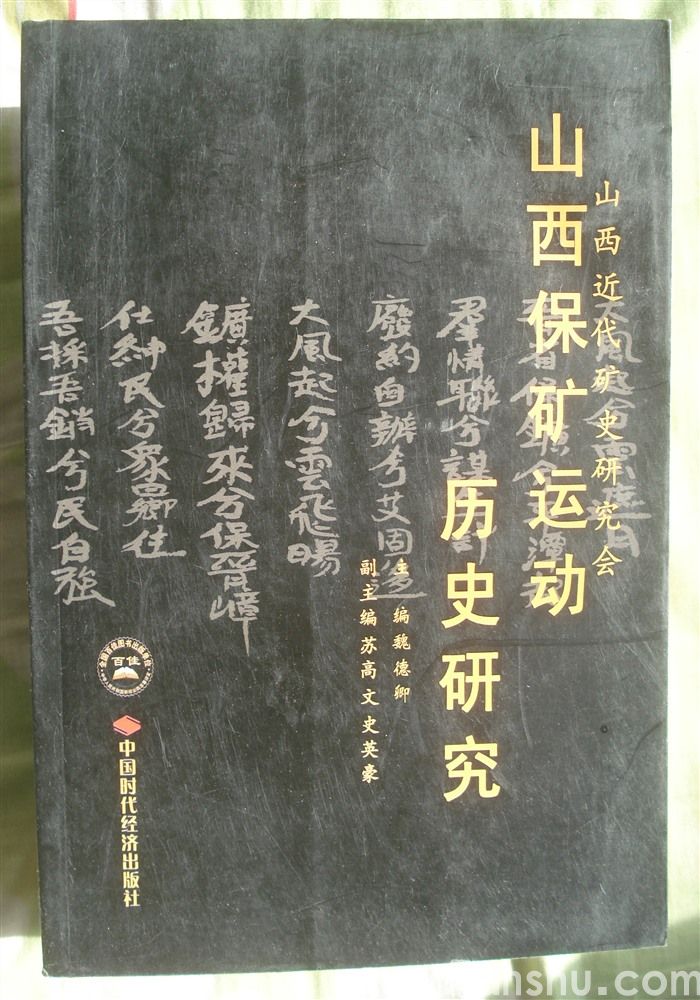 山西近代矿史研究会
山西保矿运动
历史研究
主编魏德卿
副主编苏高文史英豪
羣情聯兮謀
廢約自辦兮艾固
大風起兮雲飛暘
鑛權歸來兮保晉嶂
仕紳民兮眾鄉住
吾採吾銷兮民自強
全国百佳图书出版单位
百佳
中国时代经济出版社
nshu.com